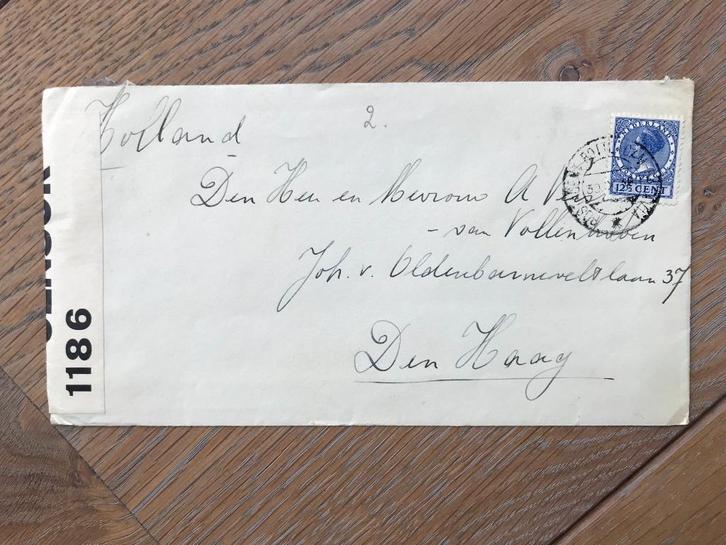 Holland
2.
Den Heer en Mevrouw A
- van Vollenhoven
Joh. v. Oldenbarneveltlaan 37
Den Haag
NEDERLAND
12½ CENT
1186